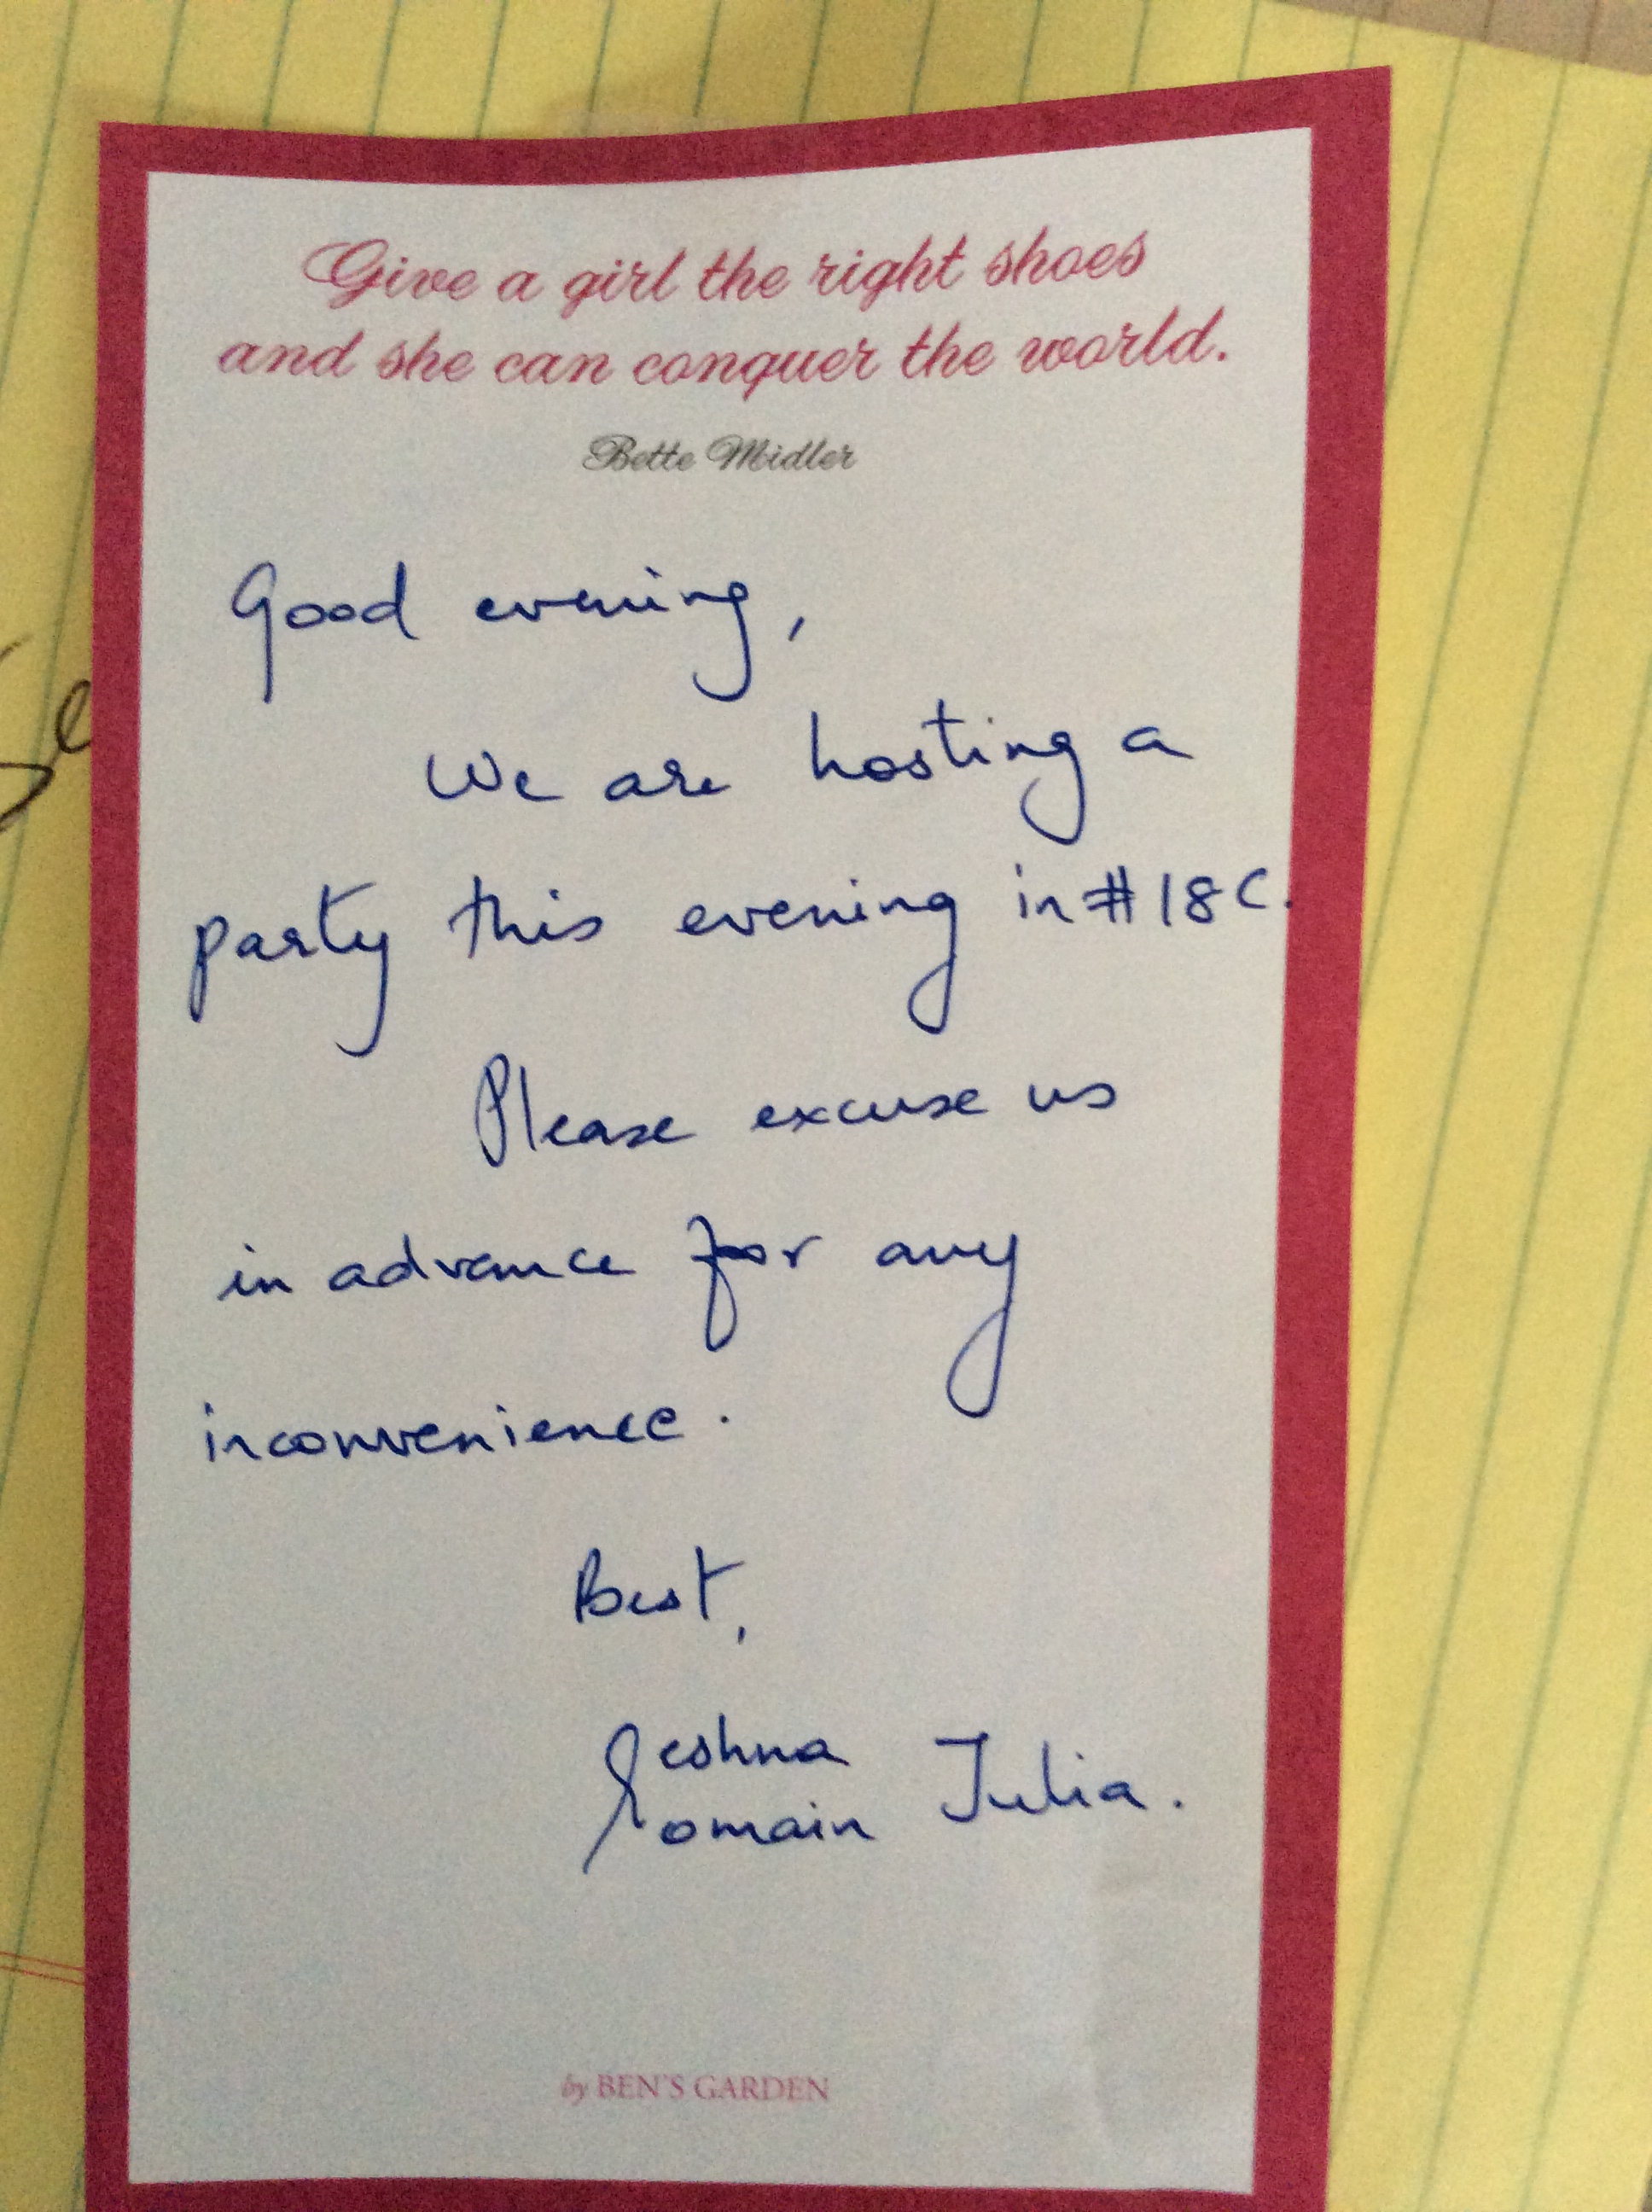 Give a girl the right shoes
and she can conquer the world.
Bette Midler
Good evening,
We are hosting a
party this evening in #18C.
Please excuse us
in advance for any
inconvenience.
Best,
Julia.
by BEN'S GARDEN